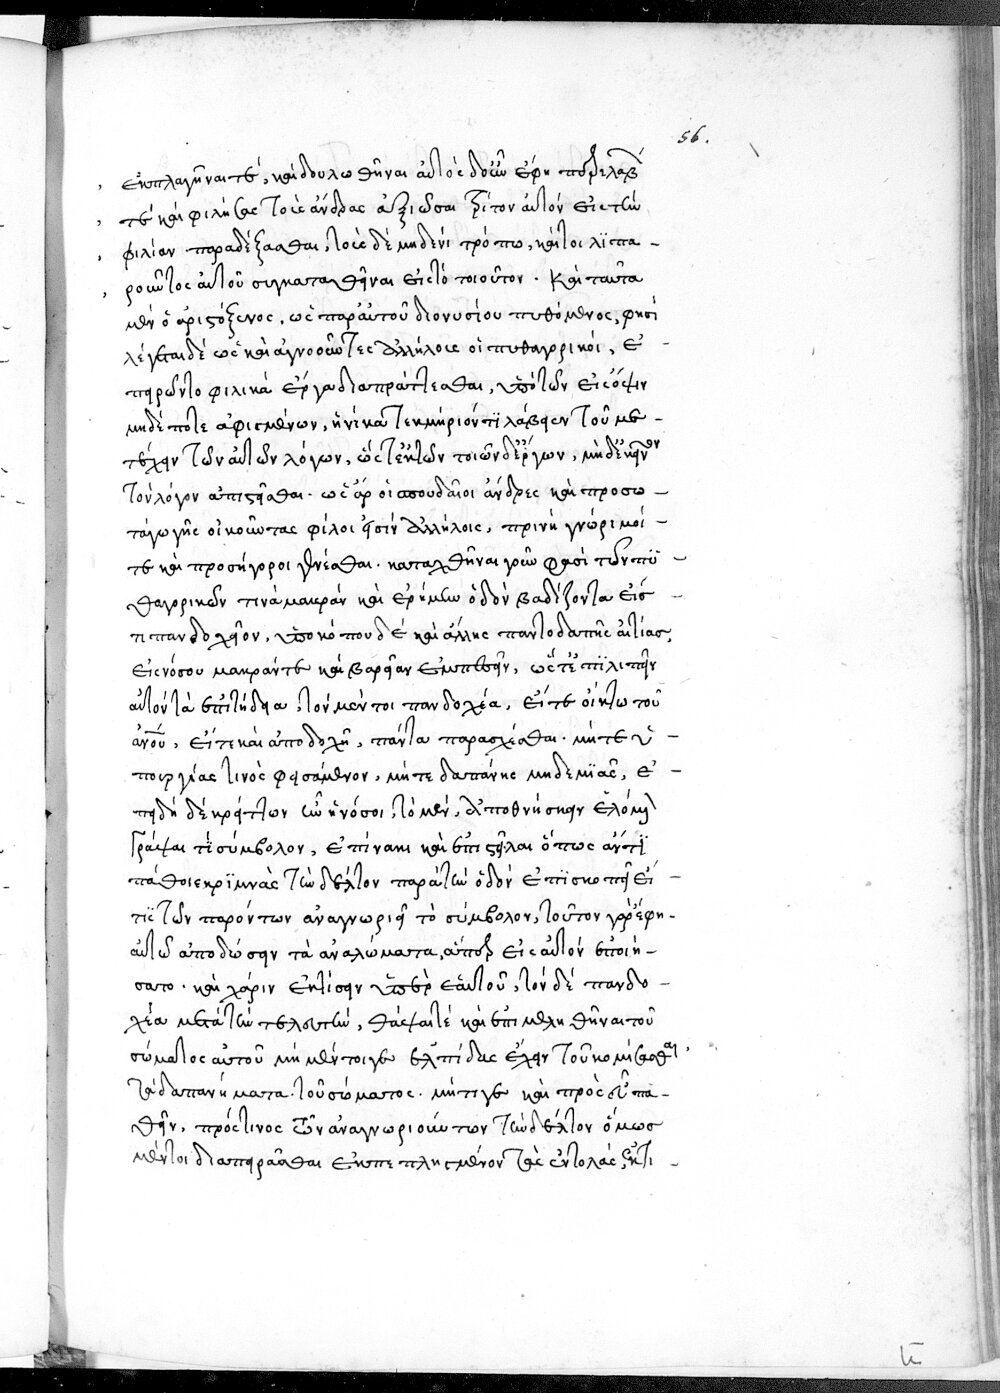 56.
ἐκπλαγῆναί τε, καὶ δουλωθῆναι αὐτὸς δ᾽ οὖν ἔφη περιλαβών
τε καὶ φιλήσας τοὺς ἄνδρας ἀξιῶσαι τρίτον αὐτὸν εἰς τὴν
φιλίαν παραδέξασθαι, τοὺς δὲ μηδενὶ τρόπω, καίτοι λιπα-
ροῦντος αὐτοῦ συγκαταθῆναι εἰς τὸ τοιοῦτον. Καὶ ταῦτα
μὲν ὁ ἀριστόξενος, ὡς παρ᾽ αὐτοῦ διονυσίου πυθόμενος, φησί
λέγεται δὲ ὡς καὶ ἀγνοοῦντες ἀλλήλους οἱ πυθαγορικοί, ἐ-
πειρῶντο φιλικὰ ἔργα διαπράττεσθαι, ὑπὸ τῶν εἰς ὄψιν
μηδέποτε ἀφιγμένων, ἡνίκα τεκμήριόν τι λάβοιεν τοῦ με-
τέχειν τῶν αὐτῶν λόγων, ὥστ᾽ ἐκ τῶν τοιῶνδε ἔργων, μὴ δὲ κεῖνον
τὸν λόγον ἀπιστεῖσθαι. ὡς ἄρ᾽ οἱ σπουδαῖοι ἄνδρες καὶ προσω-
τάτω γῆς οἰκοῦντας φίλοι εἰσὶν ἀλλήλοις, πρινὴ γνώριμοί-
τε καὶ προσήγοροι γενέσθαι. καταχθῆναι γοῦν φασὶ τῶν πυ-
θαγορικῶν τινὰ μακρὰν καὶ ἐρήμην ὁδὸν βαδίζοντα εἴς-
τι πανδοχεῖον, ὑπὸ κόπου δὲ καὶ ἄλλης παντοδαπῆς αἰτίας,
εἰς νόσου μακράν τε καὶ βαρεῖαν ἐμπεσεῖν, ὥστ᾽ ἐπιλιπεῖν
αὐτὸν τὰ ἐπιτήδεια, τὸν μέντοι πανδοχέα, εἴτε οἴκτω τοῦ
ἀνοῦ, εἴτε καὶ ἀποδοχῆ, πάντα παρασχέσθαι. μήτε ὑ-
πουργίας τινὸς φεισάμενον, μήτε δαπάνης μηδεμιᾶς, ἐ-
πειδὴ δὲ κρείττων ἦν ἡ νόσος, τὸ μὲν, ἀποθνήσκειν ἑλόμενον
γράψαι τὶ σύμβολον, ἐπίνακι καὶ ἐπιστεῖλαι ὅπως ἄν τι
πάθοι ἐκριμνὰς τὴν δέλτον παρὰ τὴν ὁδὸν ἐπισκοπῆ εἴ-
τις τῶν παρόντων ἀναγνωριεῖ τὸ σύμβολον, τοῦτον γὰρ ἔφη-
αὐτῶ ἀποδώσειν τὰ ἀναλώματα, ἅπερ εἰς αὐτὸν ἐποιή-
σατο. καὶ χάριν ἐκτίσειν ὑπὲρ ἑαυτοῦ, τὸν δὲ πανδο-
χέα μετὰ τὴν τελευτὴν, θάψαι τὲ καὶ ἐπιμεληθῆναι τοῦ
σώματος αὐτοῦ μὴ μέντοιγε ἐλπίδας ἔχειν τοῦ κομίσασθαι
τὰ δαπανήματα. τοῦ σώματος. μήτιγε καὶ πρὸς εὖ πα-
θεῖν, πρός τινος τῶν ἀναγνωριούντων τὴν δέλτον ὅμως
μέντοι διαπειρᾶσθαι ἐκπεπληγμένον τὰς ἐντολάς, ἐκτι-